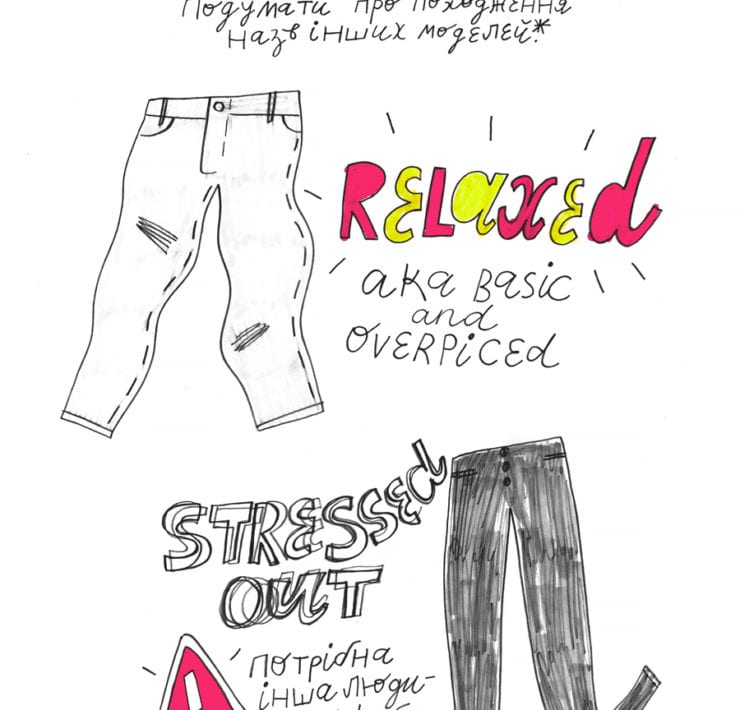 Подумати про походження
назв інших моделей.*
RELaxEd
aka Basic
and
OVERPiCEd
STRESSEd
OuT
потрібна
інша люди-